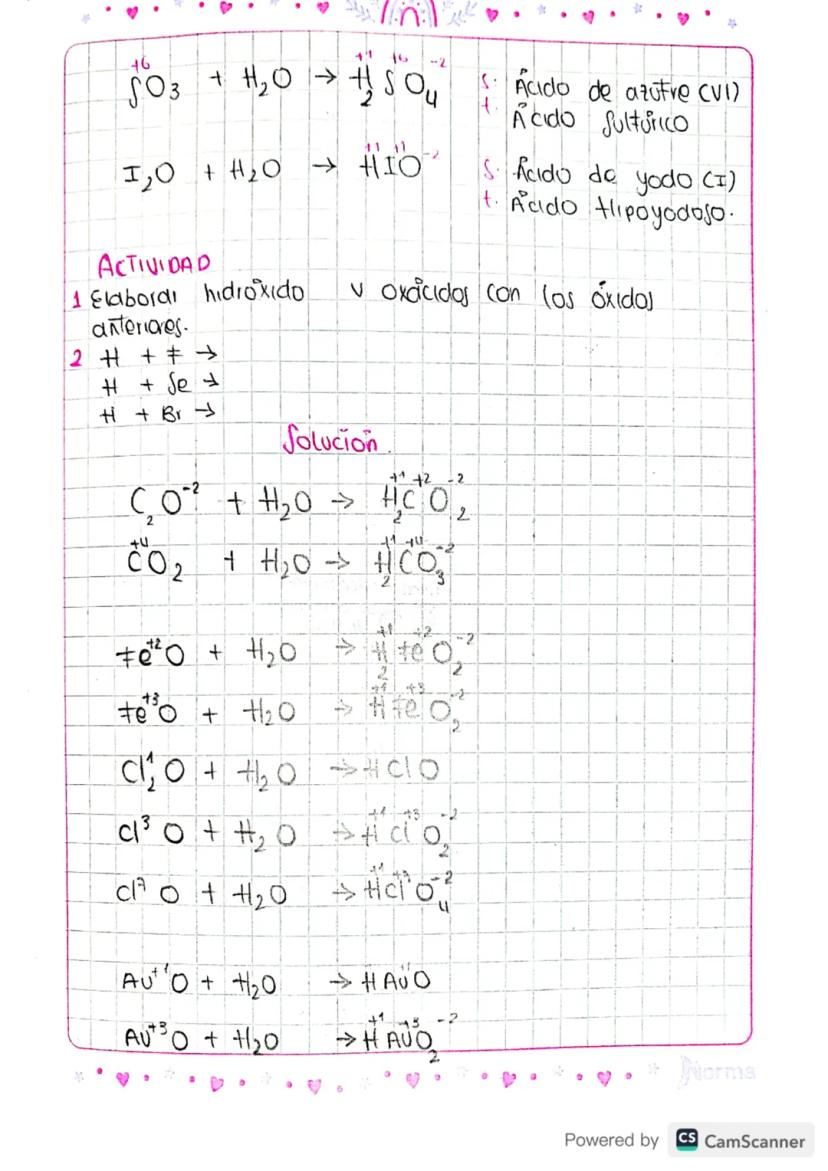 +6 SO3 + H2O → +1 +6 -2 H2SO4 s. Ácido de azufre (VI)
t. Ácido Sulfúrico
I2O + H2O → +1 +1 -2 HIO s. Ácido de yodo (I)
t. Ácido Hipoyodoso.
ACTIVIDAD
1 Elaborar hidróxido y oxácidos con los óxidos
anteriores.
2 H + F →
H + Se →
H + Br →
Solución.
C2O-2 + H2O → +1 +2 -2 H2CO2
+4 CO2 + H2O → +1 +4 -2 H2CO3
Fe+2O + H2O → +1 +2 -2 H2FeO2
Fe+3O + H2O → +1 +3 -2 HFeO2
Cl1 2O + H2O → HClO
Cl3 O + H2O → +1 +3 -2 HClO2
Cl7 O + H2O → +1 +7 -2 HClO4
Au+1O + H2O → HAuO
Au+3O + H2O → +1 +3 -2 HAuO2
Norma
Powered by CS CamScanner